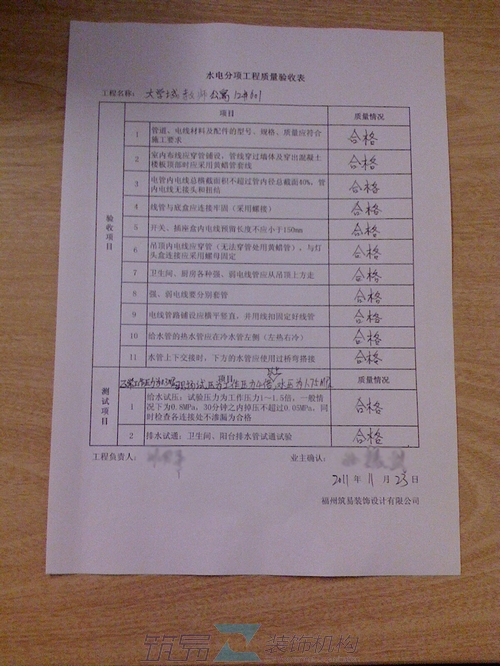 水电分项工程质量验收表
工程名称：大学城教师公寓
项目 质量情况
验收项目
1 管道、电线材料及配件的型号、规格、质量应符合施工要求 合格
2 室内布线应穿管铺设，管线穿过墙体及穿出混凝土楼板顶部时应采用黄蜡管套线 合格
3 电管内电线总横截面积不超过管内径总截面40%，管内电线无接头和扭结 合格
4 线管与底盒应连接牢固（采用螺接） 合格
5 开关、插座盒内电线预留长度不应小于150mm 合格
6 吊顶内电线应穿管（无法穿管处用黄蜡管），与灯头盒连接应采用螺母固定 合格
7 卫生间、厨房各种强、弱电线管应从吊顶上方走 合格
8 强、弱电线要分别套管 合格
9 电线管路铺设应横平竖直，并用线扣固定好线管 合格
10 给水管的热水管应在冷水管左侧（左热右冷） 合格
11 水管上下交接时，下方的水管应使用过桥弯搭接 合格
质量情况
测试项目
1 给水试压：试验压力为工作压力1～1.5倍，一般情况下为0.8MPa，30分钟之内掉压不超过0.05MPa，同时检查各连接处不渗漏为合格
2 排水试通：卫生间、阳台排水管试通试验 合格
工程负责人： 业主确认：
2011 年 11 月 23 日
福州筑易装饰设计有限公司
筑易 装饰机构